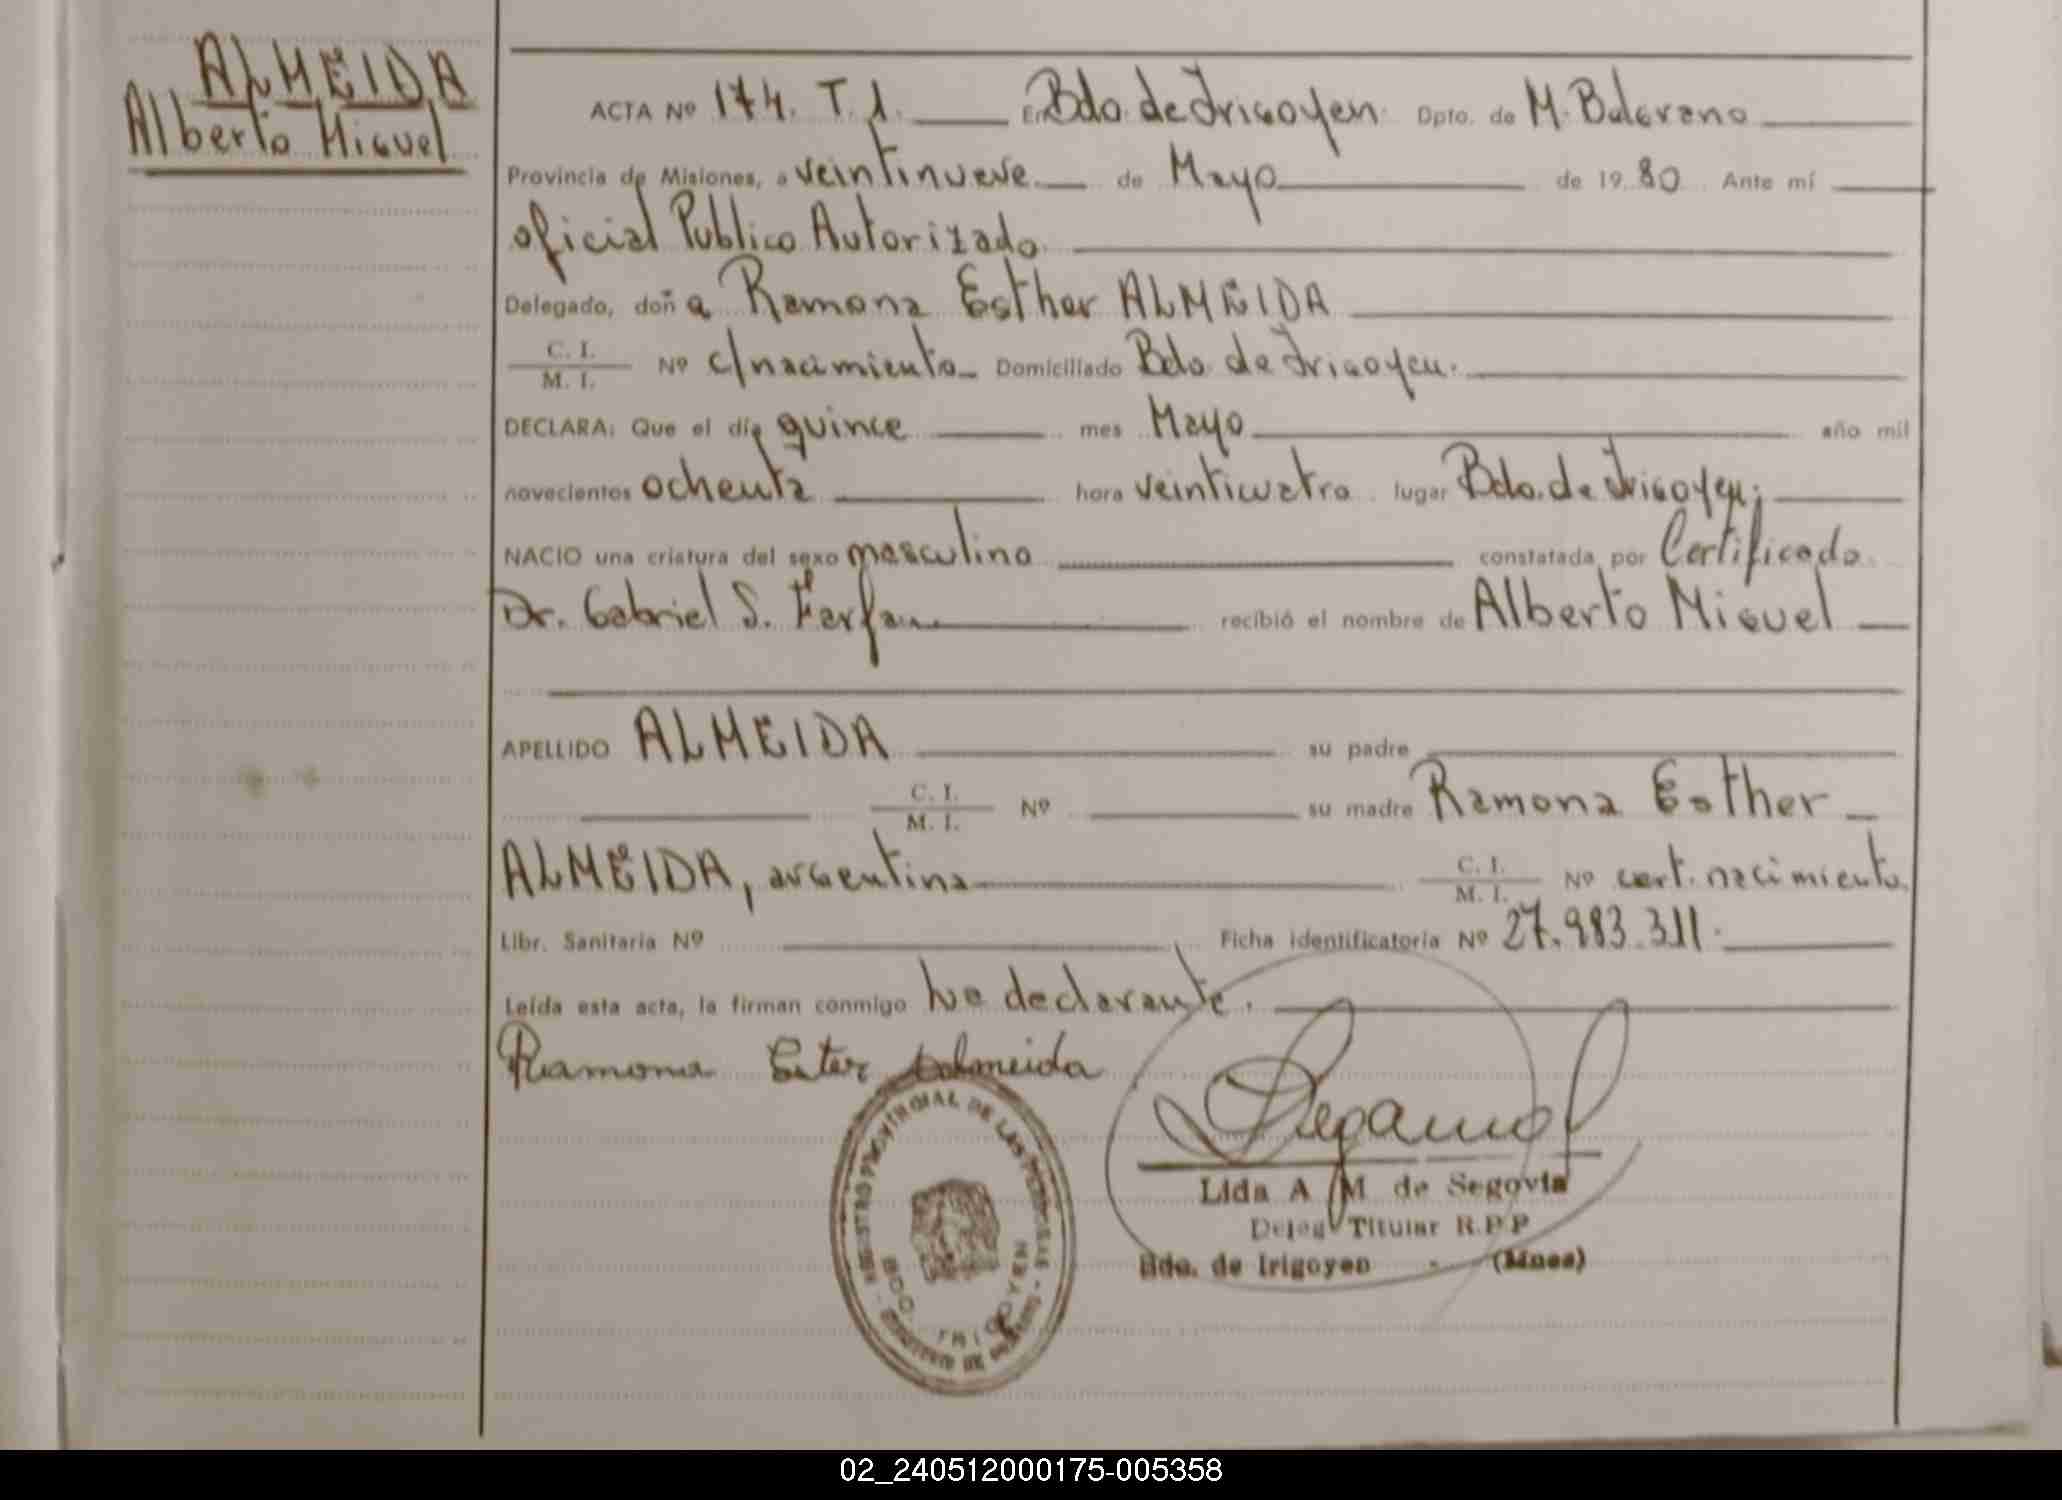 ALMEIDA
Alberto Miguel
ACTA Nº 174. T. 1. En Bdo. de Irigoyen. Dpto. de M. Belgrano
Provincia de Misiones, a veintinueve de Mayo de 19 80 Ante mí
oficial Publico Autorizado
Delegado, doña Ramona Esther ALMEIDA
C. I.
M. I. Nº c/nacimiento Domiciliado Bdo. de Irigoyen.
DECLARA: Que el día quince mes Mayo año mil
novecientos ochenta hora veinticuatro lugar Bdo. de Irigoyen;
NACIO una criatura del sexo masculino constatada por Certificado
Dr. Gabriel S. Farfan recibió el nombre de Alberto Miguel
APELLIDO ALMEIDA su padre
C. I.
M. I. Nº su madre Ramona Esther
ALMEIDA, argentina C. I.
M. I. Nº cert. nacimiento
Libr. Sanitaria Nº Ficha identificatoria Nº 27.983.311.
Leída esta acta, la firman conmigo la declarante.
Ramona Ester Almeida
REGISTRO PROVINCIAL DE LAS PERSONAS
BDO. IRIGOYEN
Lida A M. de Segovia
Deleg Titular R.P.P
Bdo. de Irigoyen - (Mnes)
02_240512000175-005358